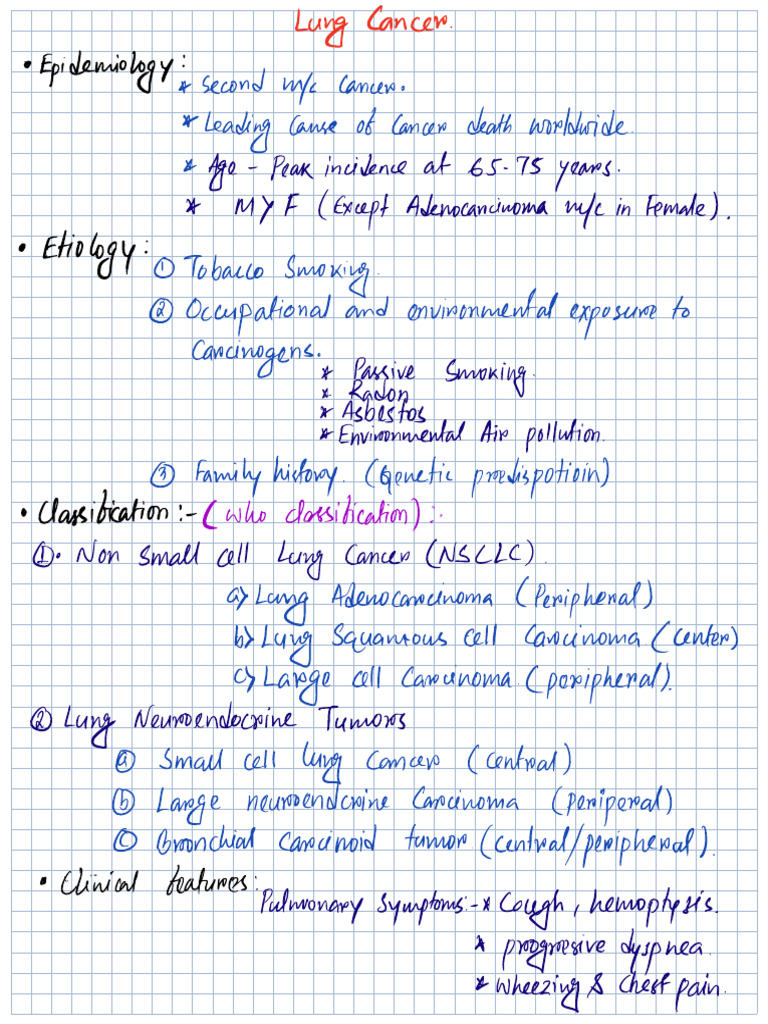 Lung Cancer.
• Epidemiology:
* Second m/c Cancer.
* Leading Cause of Cancer death worldwide.
* Age - Peak incidence at 65-75 years.
* M > F (Except Adenocarcinoma m/c in Female).
• Etiology:
① Tobacco Smoking.
② Occupational and environmental exposure to
Carcinogens.
* Passive Smoking.
* Radon
* Asbestos
* Environmental Air pollution.
③ Family history. (Genetic predispotioin)
• Classification:- (who classification):-
①• Non Small cell Lung Cancer (NSCLC)
a) Lung Adenocarcinoma (Peripheral)
b) Lung Squamous cell Carcinoma (center)
c) Large cell Carcinoma (peripheral).
② Lung Neuroendocrine Tumors
ⓐ Small cell lung Cancer (central)
ⓑ Large neuroendcrine Carcinoma (periperal)
ⓒ Bronchial Carcinoid tumor (central/peripheral).
• Clinical features:
Pulmonary Symptoms:-* Cough, hemoptysis.
* progresive dyspnea.
* wheezing & chest pain.